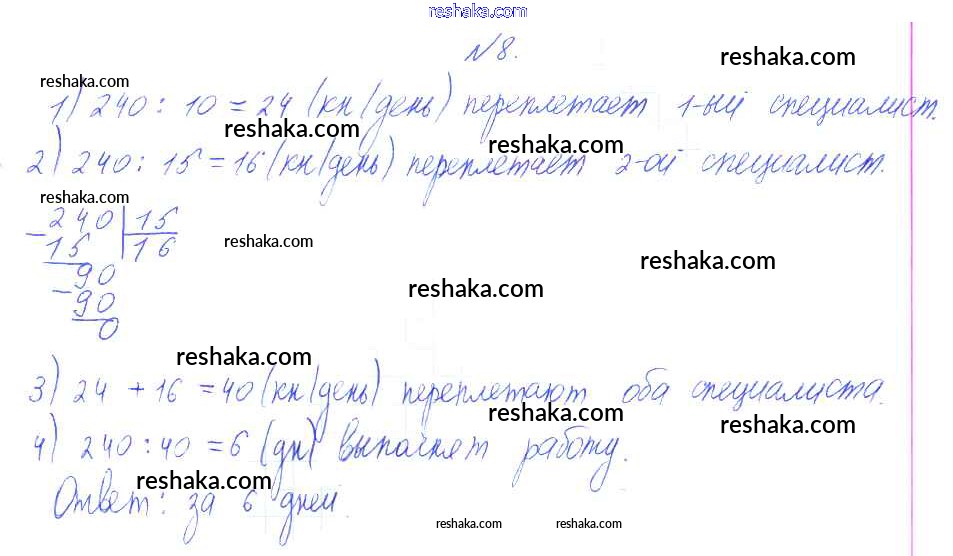 reshaka.com
№8.
reshaka.com
reshaka.com
1) 240 : 10 = 24 (кн/день) переплетает 1-ый специалист.
reshaka.com
reshaka.com
2) 240 : 15 = 16 (кн/день) переплетает 2-ой специалист.
reshaka.com
- 240 | 15
15 16
reshaka.com
90
reshaka.com
- 90
reshaka.com
0
reshaka.com
3) 24 + 16 = 40 (кн/день) переплетают оба специалиста.
reshaka.com
reshaka.com
4) 240 : 40 = 6 (дн) выполнят работу.
reshaka.com
Ответ: за 6 дней.
reshaka.com reshaka.com